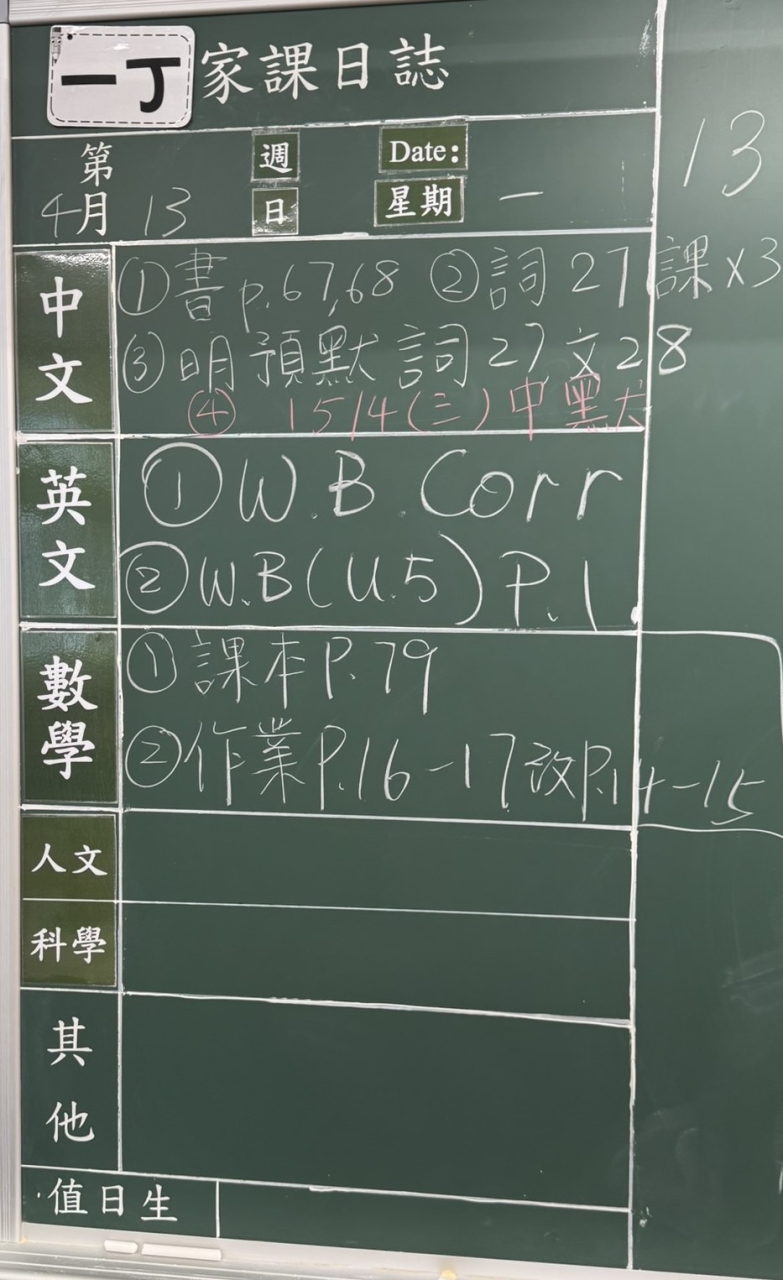 一丁 家課日誌
第 週 Date:
4月 13 日 星期 一
13
中文
①書p.67,68 ②詞27課×3
③明預默 詞27,文28
④ 15/4(三)中默
英文
①W.B. Corr
②W.B(U.5) P.1
數學
①課本P.79
②作業P.16-17改P.14-15
人文
科學
其他
值日生